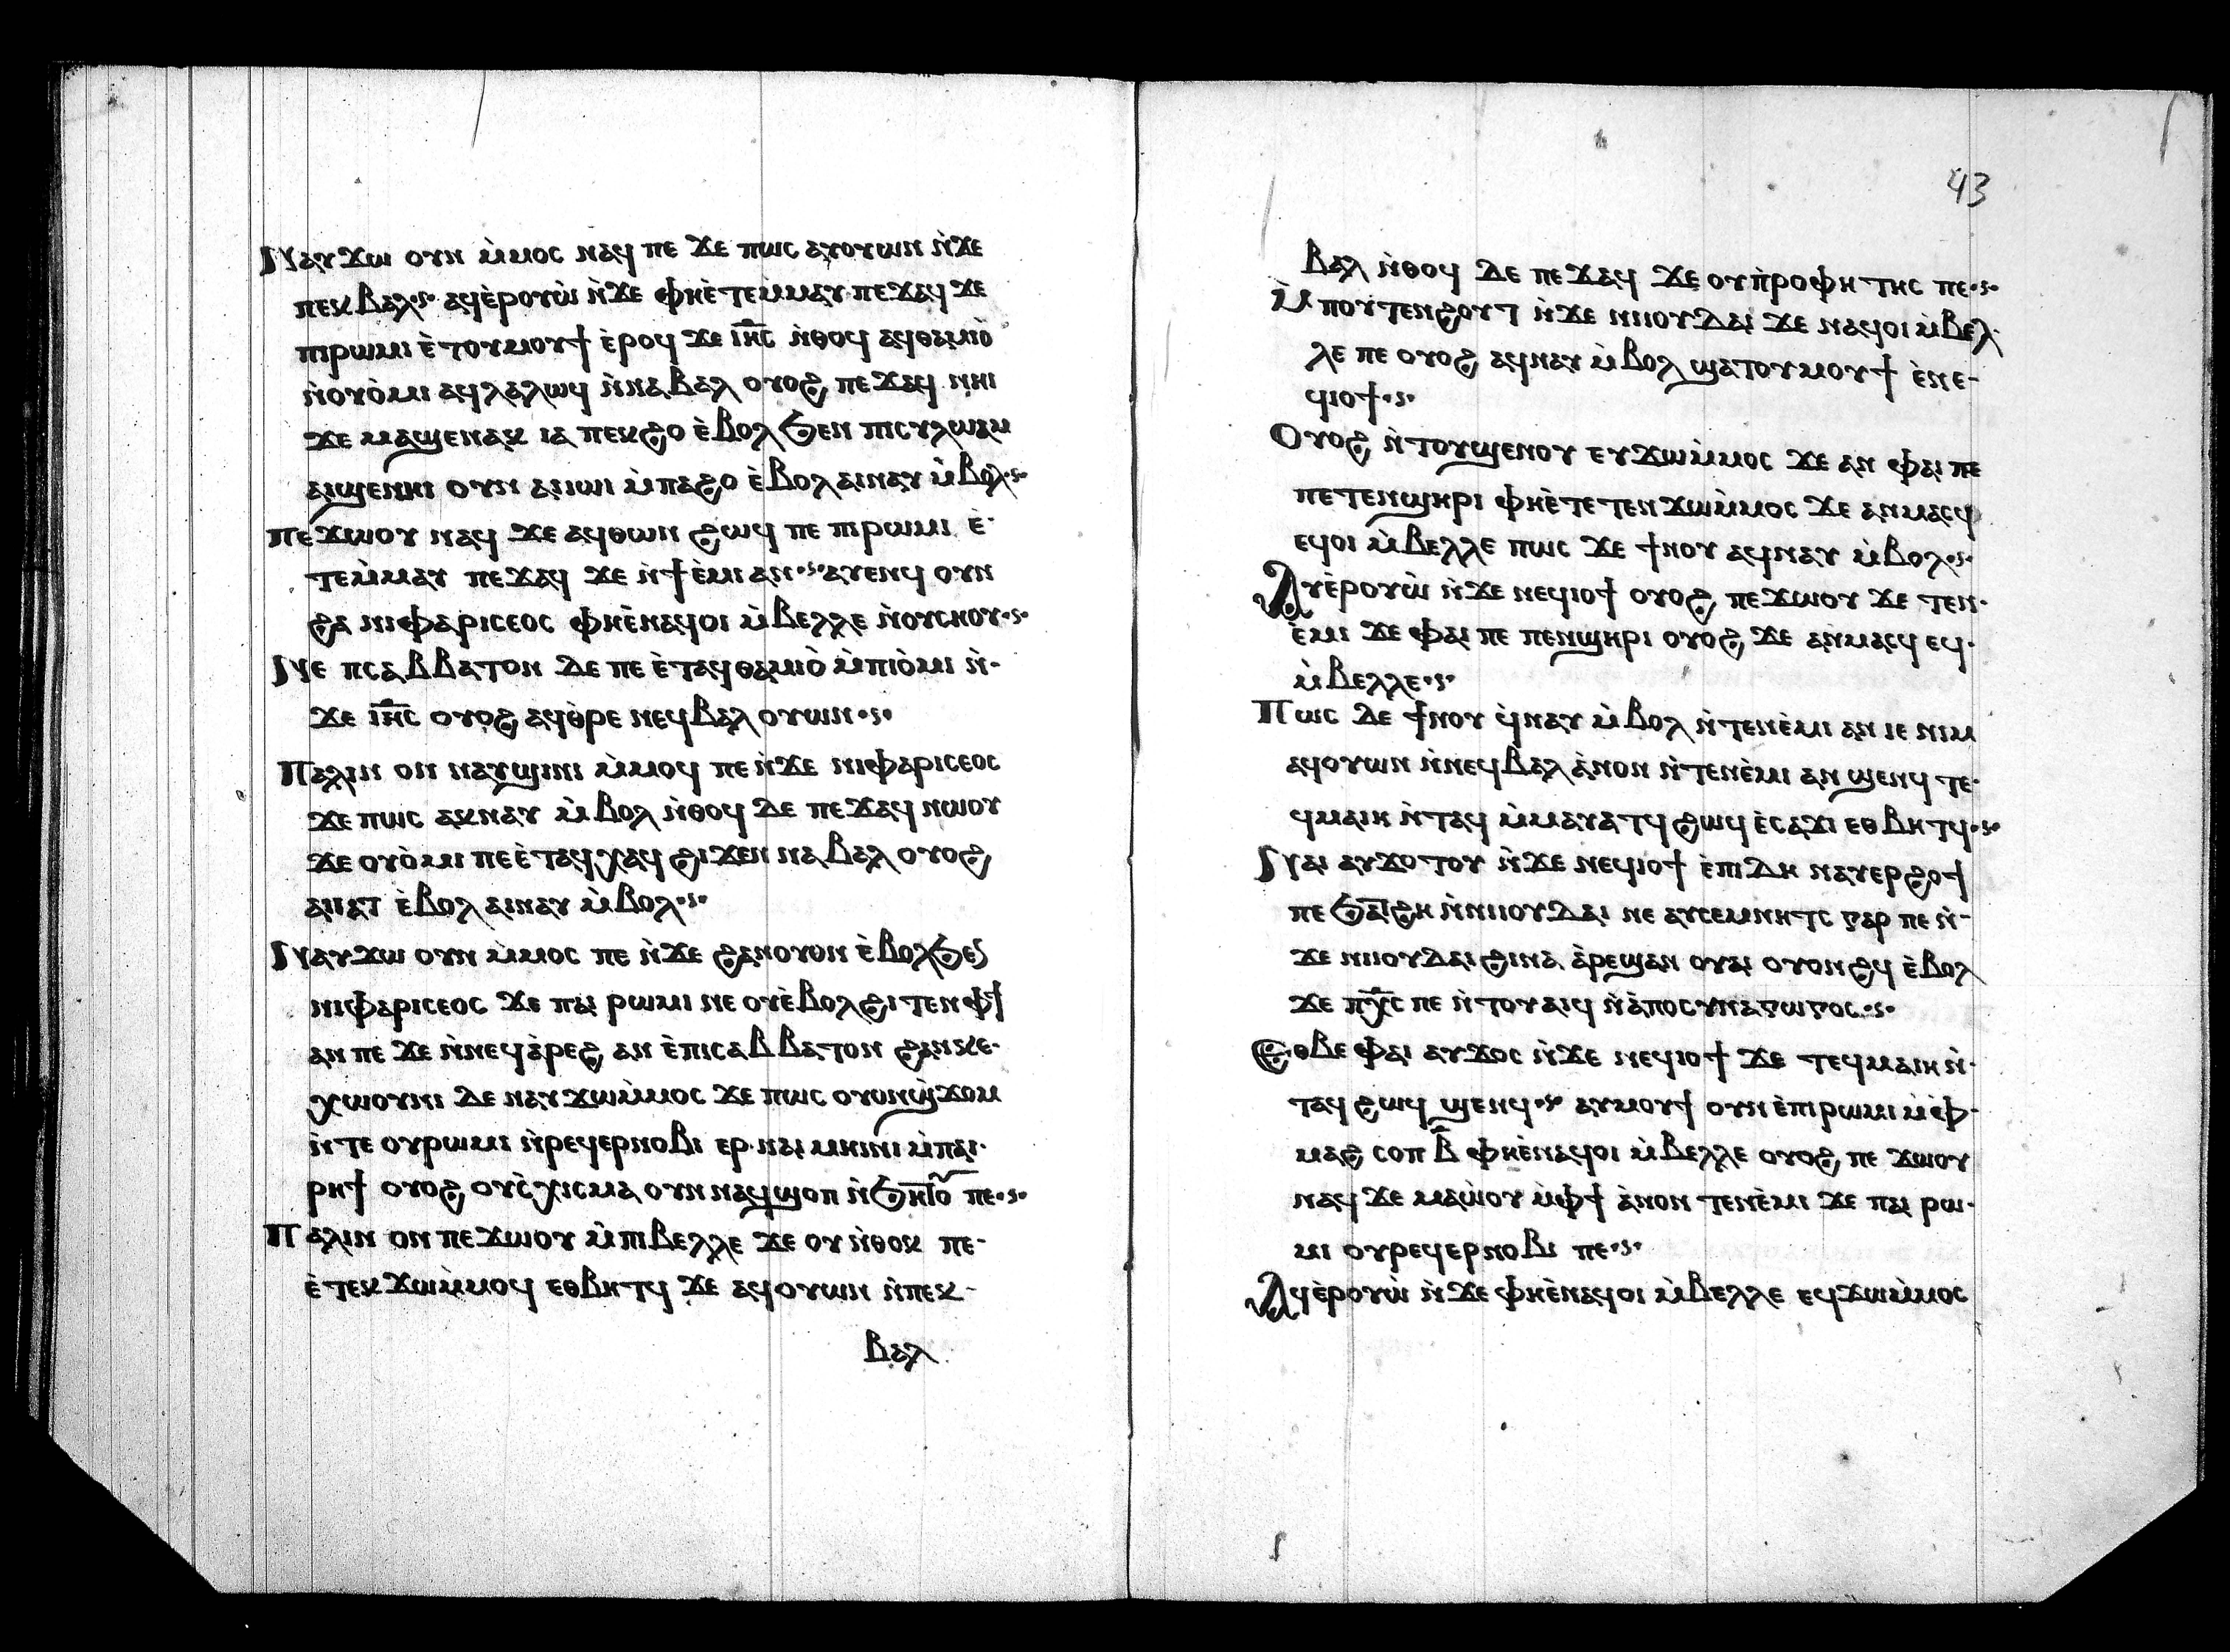 Ⲛⲁⲩϫⲱ ⲟⲩⲛ ⲙ̀ⲙⲟⲥ ⲛⲁϥ ⲡⲉ ϫⲉ ⲡⲱⲥ ⲁⲩⲟⲩⲱⲛ ⲛ̀ϫⲉ
ⲡⲉⲕⲃⲁⲗ·ⲋ· ⲁϥⲉ̀ⲣⲟⲩⲱ̀ ⲛ̀ϫⲉ ⲫⲏⲉ̀ⲧⲉⲙ̀ⲙⲁⲩ ⲡⲉϫⲁϥ ϫⲉ
ⲡⲓⲣⲱⲙⲓ ⲉ̀ⲧⲟⲩⲙⲟⲩϯ ⲉ̀ⲣⲟϥ ϫⲉ ⲓⲏ̅ⲥ̅ ⲛ̀ⲑⲟϥ ⲁϥⲑⲁⲙⲓⲟ̀
ⲛ̀ⲟⲩⲟ̀ⲙⲓ ⲁϥⲗⲁⲗⲱϥ ⲛ̀ⲛⲁⲃⲁⲗ ⲟⲩⲟϩ ⲡⲉϫⲁϥ ⲛⲏⲓ
ϫⲉ ⲙⲁϣⲉⲛⲁⲕ ⲓⲁ ⲡⲉⲕϩⲟ ⲉ̀ⲃⲟⲗ ϧⲉⲛ ⲡⲓⲥⲩⲗⲱⲁⲙ
ⲁⲓϣⲉⲛⲏⲓ ⲟⲩⲛ ⲁⲓⲓⲱⲓ ⲙ̀ⲡⲁϩⲟ ⲉ̀ⲃⲟⲗ ⲁⲓⲛⲁⲩ ⲙ̀ⲃⲟⲗ·ⲋ·
ⲡⲉϫⲱⲟⲩ ⲛⲁϥ ϫⲉ ⲁϥⲑⲱⲛ ϩⲱϥ ⲡⲉ ⲡⲓⲣⲱⲙⲓ ⲉ̀-
ⲧⲉⲙ̀ⲙⲁⲩ ⲡⲉϫⲁϥ ϫⲉ ⲛ̀ϯⲉ̀ⲙⲓ ⲁⲛ·ⲋ· ⲁⲩⲉⲛϥ ⲟⲩⲛ
ϩⲁ ⲛⲓⲫⲁⲣⲓⲥⲉⲟⲥ ⲫⲏⲉ̀ⲛⲁϥⲟⲓ ⲙ̀ⲃⲉⲗⲗⲉ ⲛ̀ⲟⲩⲥⲏⲟⲩ·ⲋ·
Ⲛⲉ ⲡⲥⲁⲃⲃⲁⲧⲟⲛ ⲇⲉ ⲡⲉ ⲉ̀ⲧⲁϥⲑⲁⲙⲓⲟ̀ ⲙ̀ⲡⲓⲟ̀ⲙⲓ ⲛ̀-
ϫⲉ ⲓⲏ̅ⲥ̅ ⲟⲩⲟϩ ⲁϥⲑ̀ⲣⲉ ⲛⲉϥⲃⲁⲗ ⲟⲩⲱⲛ·ⲋ·
Ⲡⲁⲗⲓⲛ ⲟⲛ ⲛⲁⲩϣⲓⲛⲓ ⲙ̀ⲙⲟϥ ⲡⲉ ⲛ̀ϫⲉ ⲛⲓⲫⲁⲣⲓⲥⲉⲟⲥ
ϫⲉ ⲡⲱⲥ ⲁⲕⲛⲁⲩ ⲙ̀ⲃⲟⲗ ⲛ̀ⲑⲟϥ ⲇⲉ ⲡⲉϫⲁϥ ⲛⲱⲟⲩ
ϫⲉ ⲟⲩⲟ̀ⲙⲓ ⲡⲉⲉ̀ⲧⲁϥⲭⲁϥ ϩⲓϫⲉⲛ ⲛⲁⲃⲁⲗ ⲟⲩⲟϩ
ⲁⲓⲓⲁⲧ ⲉ̀ⲃⲟⲗ ⲁⲓⲛⲁⲩ ⲙ̀ⲃⲟⲗ·ⲋ·
Ⲛⲁⲩϫⲱ ⲟⲩⲛ ⲙ̀ⲙⲟⲥ ⲡⲉ ⲛ̀ϫⲉ ϩⲁⲛⲟⲩⲟⲛ ⲉ̀ⲃⲟⲗϧⲉⲛ
ⲛⲓⲫⲁⲣⲓⲥⲉⲟⲥ ϫⲉ ⲡⲁⲓ ⲣⲱⲙⲓ ⲛⲉ ⲟⲩⲉ̀ⲃⲟⲗϩⲓⲧⲉⲛ ⲫϯ
ⲁⲛ ⲡⲉ ϫⲉ ⲛ̀ⲛⲉϥⲁ̀ⲣⲉϩ ⲁⲛ ⲉ̀ⲡⲓⲥⲁⲃⲃⲁⲧⲟⲛ ϩⲁⲛⲕⲉ-
ⲭⲱⲟⲩⲛⲓ ⲇⲉ ⲛⲁⲩϫⲱⲙ̀ⲙⲟⲥ ϫⲉ ⲡⲱⲥ ⲟⲩⲟⲛϣϫⲟⲙ
ⲛ̀ⲧⲉ ⲟⲩⲣⲱⲙⲓ ⲛ̀ⲣⲉϥⲉⲣⲛⲟⲃⲓ ⲉⲣ ⲛⲁⲓ ⲙⲏⲓⲛⲓ ⲙ̀ⲡⲁⲓ-
ⲣⲏϯ ⲟⲩⲟϩ ⲟⲩⲥ̀ⲭⲓⲥⲙⲁ ⲟⲩⲛ ⲛⲁϥϣⲟⲡ ⲛ̀ϧⲏⲧⲟⲩ ⲡⲉ·ⲋ·
Ⲡⲁⲗⲓⲛ ⲟⲛ ⲡⲉϫⲱⲟⲩ ⲙ̀ⲡⲓⲃⲉⲗⲗⲉ ϫⲉ ⲟⲩ ⲛ̀ⲑⲟⲕ ⲡⲉ-
ⲉ̀ⲧⲉⲕϫⲱⲙ̀ⲙⲟϥ ⲉⲑⲃⲏⲧϥ ϫⲉ ⲁϥⲟⲩⲱⲛ ⲛ̀ⲡⲉⲕ-
ⲃⲁⲗ
43
ⲃⲁⲗ ⲛ̀ⲑⲟϥ ⲇⲉ ⲡⲉϫⲁϥ ϫⲉ ⲟⲩⲡ̀ⲣⲟⲫⲏⲧⲏⲥ ⲡⲉ·ⲋ·
Ⲙ̀ⲡⲟⲩⲧⲉⲛϩⲟⲩⲧ ⲛ̀ϫⲉ ⲛⲓⲓⲟⲩⲇⲁⲓ ϫⲉ ⲛⲁϥⲟⲓ ⲙ̀ⲃⲉⲗ-
ⲗⲉ ⲡⲉ ⲟⲩⲟϩ ⲁϥⲛⲁⲩ ⲙ̀ⲃⲟⲗ ϣⲁⲧⲟⲩⲙⲟⲩϯ ⲉ̀ⲛⲉ-
ϥⲓⲟϯ·ⲋ·
Ⲟⲩⲟϩ ⲛ̀ⲧⲟⲩϣⲉⲛⲟⲩ ⲉⲩϫⲱⲙ̀ⲙⲟⲥ ϫⲉ ⲁⲛ ⲫⲁⲓ ⲡⲉ
ⲡⲉⲧⲉⲛϣⲏⲣⲓ ⲫⲏⲉ̀ⲧⲉⲧⲉⲛϫⲱⲙ̀ⲙⲟⲥ ϫⲉ ⲁⲛⲙⲁⲥϥ
ⲉϥⲟⲓ ⲙ̀ⲃⲉⲗⲗⲉ ⲡⲱⲥ ϫⲉ ϯⲛⲟⲩ ⲁϥⲛⲁⲩ ⲙ̀ⲃⲟⲗ·ⲋ·
Ⲁⲩⲉ̀ⲣⲟⲩⲱ̀ ⲛ̀ϫⲉ ⲛⲉϥⲓⲟϯ ⲟⲩⲟϩ ⲡⲉϫⲱⲟⲩ ϫⲉ ⲧⲉⲛ-
ⲉ̀ⲙⲓ ϫⲉ ⲫⲁⲓ ⲡⲉ ⲡⲉⲛϣⲏⲣⲓ ⲟⲩⲟϩ ϫⲉ ⲁⲛⲙⲁⲥϥ ⲉϥ-
ⲙ̀ⲃⲉⲗⲗⲉ·ⲋ·
Ⲡⲱⲥ ⲇⲉ ϯⲛⲟⲩ ϥ̀ⲛⲁⲩ ⲙ̀ⲃⲟⲗ ⲛ̀ⲧⲉⲛⲉ̀ⲙⲓ ⲁⲛ ⲓⲉ ⲛⲓⲙ
ⲁϥⲟⲩⲱⲛ ⲛ̀ⲛⲉϥⲃⲁⲗ ⲁ̀ⲛⲟⲛ ⲛ̀ⲧⲉⲛⲉ̀ⲙⲓ ⲁⲛ ϣⲉⲛϥ ⲧⲉ-
ϥⲙⲁⲓⲏ ⲛ̀ⲧⲁϥ ⲙ̀ⲙⲁⲩⲁⲧϥ ϩⲱϥ ⲉ̀ⲥⲁϫⲓ ⲉⲑⲃⲏⲧϥ·ⲋ·
Ⲛⲁⲓ ⲁⲩϫⲟⲧⲟⲩ ⲛ̀ϫⲉ ⲛⲉϥⲓⲟϯ ⲉ̀ⲡⲓⲇⲏ ⲛⲁⲩⲉⲣϩⲟϯ
ⲡⲉ ϧⲁⲧϩⲏ ⲛ̀ⲛⲓⲓⲟⲩⲇⲁⲓ ⲛⲉ ⲁⲩⲥⲉⲙⲛⲏⲧⲥ ⲅⲁⲣ ⲡⲉ ⲛ̀-
ϫⲉ ⲛⲓⲓⲟⲩⲇⲁⲓ ϩⲓⲛⲁ ⲁ̀ⲣⲉϣⲁⲛ ⲟⲩⲁⲓ ⲟⲩⲟⲛϩϥ ⲉ̀ⲃⲟⲗ
ϫⲉ ⲡⲭ̅ⲥ̅ ⲡⲉ ⲛ̀ⲧⲟⲩⲁⲓϥ ⲛ̀ⲁ̀ⲡⲟⲥⲩⲛⲁⲅⲱⲅⲟⲥ·ⲋ·
Ⲉⲑⲃⲉ ⲫⲁⲓ ⲁⲩϫⲟⲥ ⲛ̀ϫⲉ ⲛⲉϥⲓⲟϯ ϫⲉ ⲧⲉϥⲙⲁⲓⲏ ⲛ̀-
ⲧⲁϥ ϩⲱϥ ϣⲉⲛϥ·ⲋ· ⲁⲩⲙⲟⲩϯ ⲟⲩⲛ ⲉ̀ⲡⲓⲣⲱⲙⲓ ⲙ̀ⲫ̀-
ⲙⲁϩ ⲥⲟⲡ ⲃ̅ ⲫⲏⲉ̀ⲛⲁϥⲟⲓ ⲙ̀ⲃⲉⲗⲗⲉ ⲟⲩⲟϩ ⲡⲉϫⲱⲟⲩ
ⲛⲁϥ ϫⲉ ⲙⲁⲱ̀ⲟⲩ ⲙ̀ⲫϯ ⲁ̀ⲛⲟⲛ ⲧⲉⲛⲉ̀ⲙⲓ ϫⲉ ⲡⲁⲓ ⲣⲱ-
ⲙⲓ ⲟⲩⲣⲉϥⲉⲣⲛⲟⲃⲓ ⲡⲉ·ⲋ·
Ⲁϥⲉ̀ⲣⲟⲩⲱ̀ ⲛ̀ϫⲉ ⲫⲏⲉ̀ⲛⲁϥⲟⲓ ⲙ̀ⲃⲉⲗⲗⲉ ⲉϥϫⲱⲙ̀ⲙⲟⲥ